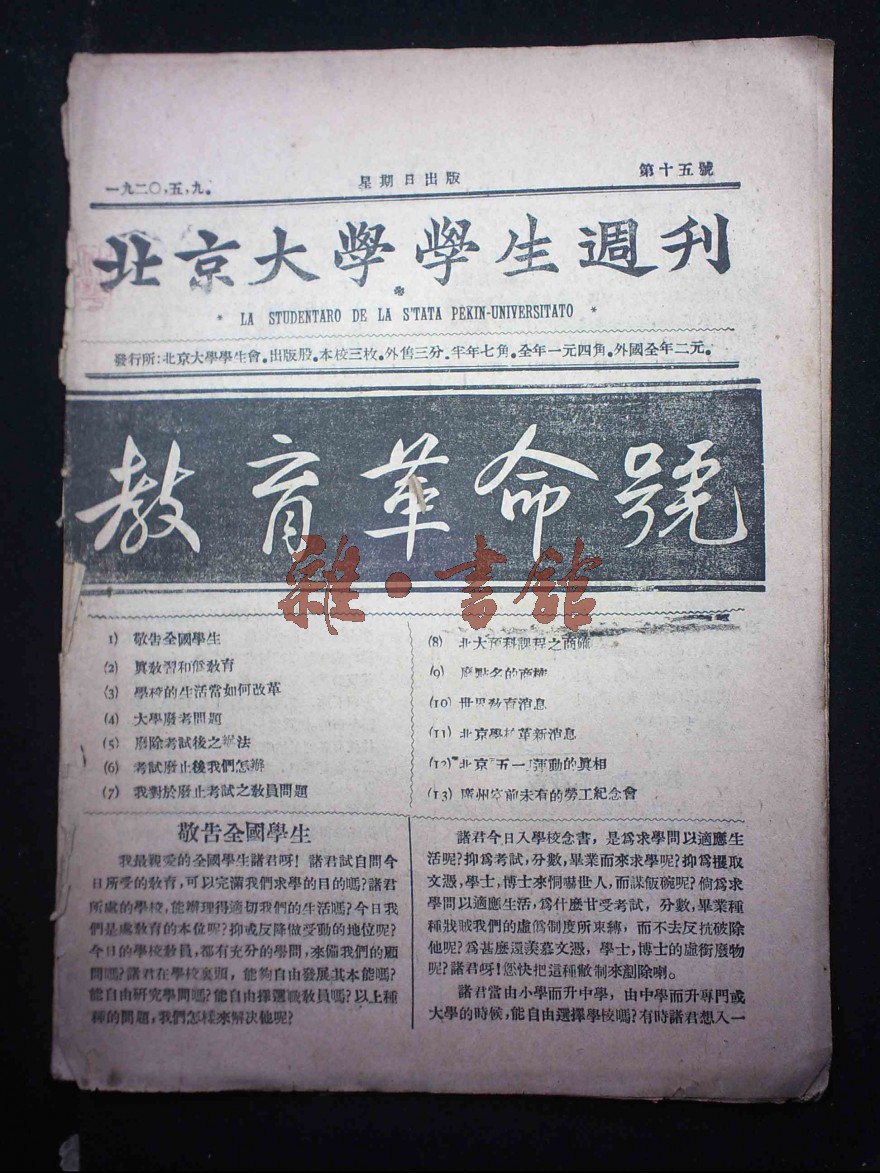 一九二〇，五，九。
星期日出版
第十五號
北京大學學生週刊
* LA STUDENTARO DE LA S'TATA PEKIN-UNIVERSITATO *
發行所：北京大學學生會。出版股。本校三枚。外售三分。半年七角。全年一元四角。外國全年二元。
教育革命號
雜·書館
1) 敬告全國學生
(2) 眞敎習和僞敎育
(3) 學校的生活當如何改革
(4) 大學廢考問題
(5) 廢除考試後之辦法
(6) 考試廢止後我們怎辦
(7) 我對於廢止考試之敎員問題
(8) 北大預科課程之商榷
(9) 廢點名的商榷
(10) 世界敎育消息
(11) 北京學校革新消息
(12) 北京『五一』運動的眞相
(13) 廣州空前未有的勞工紀念會
敬告全國學生
我最親愛的全國學生諸君呀！諸君試自問今
日所受的敎育，可以完滿我們求學的目的嗎？諸君
所處的學校，能辦理得適切我們的生活嗎？今日我
們是處敎育的本位呢？抑或反降做受動的地位呢？
今日的學校敎員，都有充分的學問，來備我們的顧
問嗎？諸君在學校裏頭，能夠自由發展其本能嗎？
能自由研究學問嗎？能自由擇選職敎員嗎？以上種
種的問題，我們怎樣來解决他呢？
諸君今日入學校念書，是爲求學問以適應生
活呢？抑爲考試，分數，畢業而來求學呢？抑爲獲取
文憑，學士，博士來恫嚇世人，而謀飯碗呢？倘爲求
學問以適應生活，爲什麼甘受考試，分數，畢業種
種戕賊我們的虛僞制度所束縛，而不去反抗破除
他呢？爲甚麼還羡慕文憑，學士，博士的虛銜廢物
呢？諸君呀！您快把這種敝制來剷除喇。
諸君當由小學而升中學，由中學而升專門或
大學的時候，能自由選擇學校嗎？有時諸君想入一